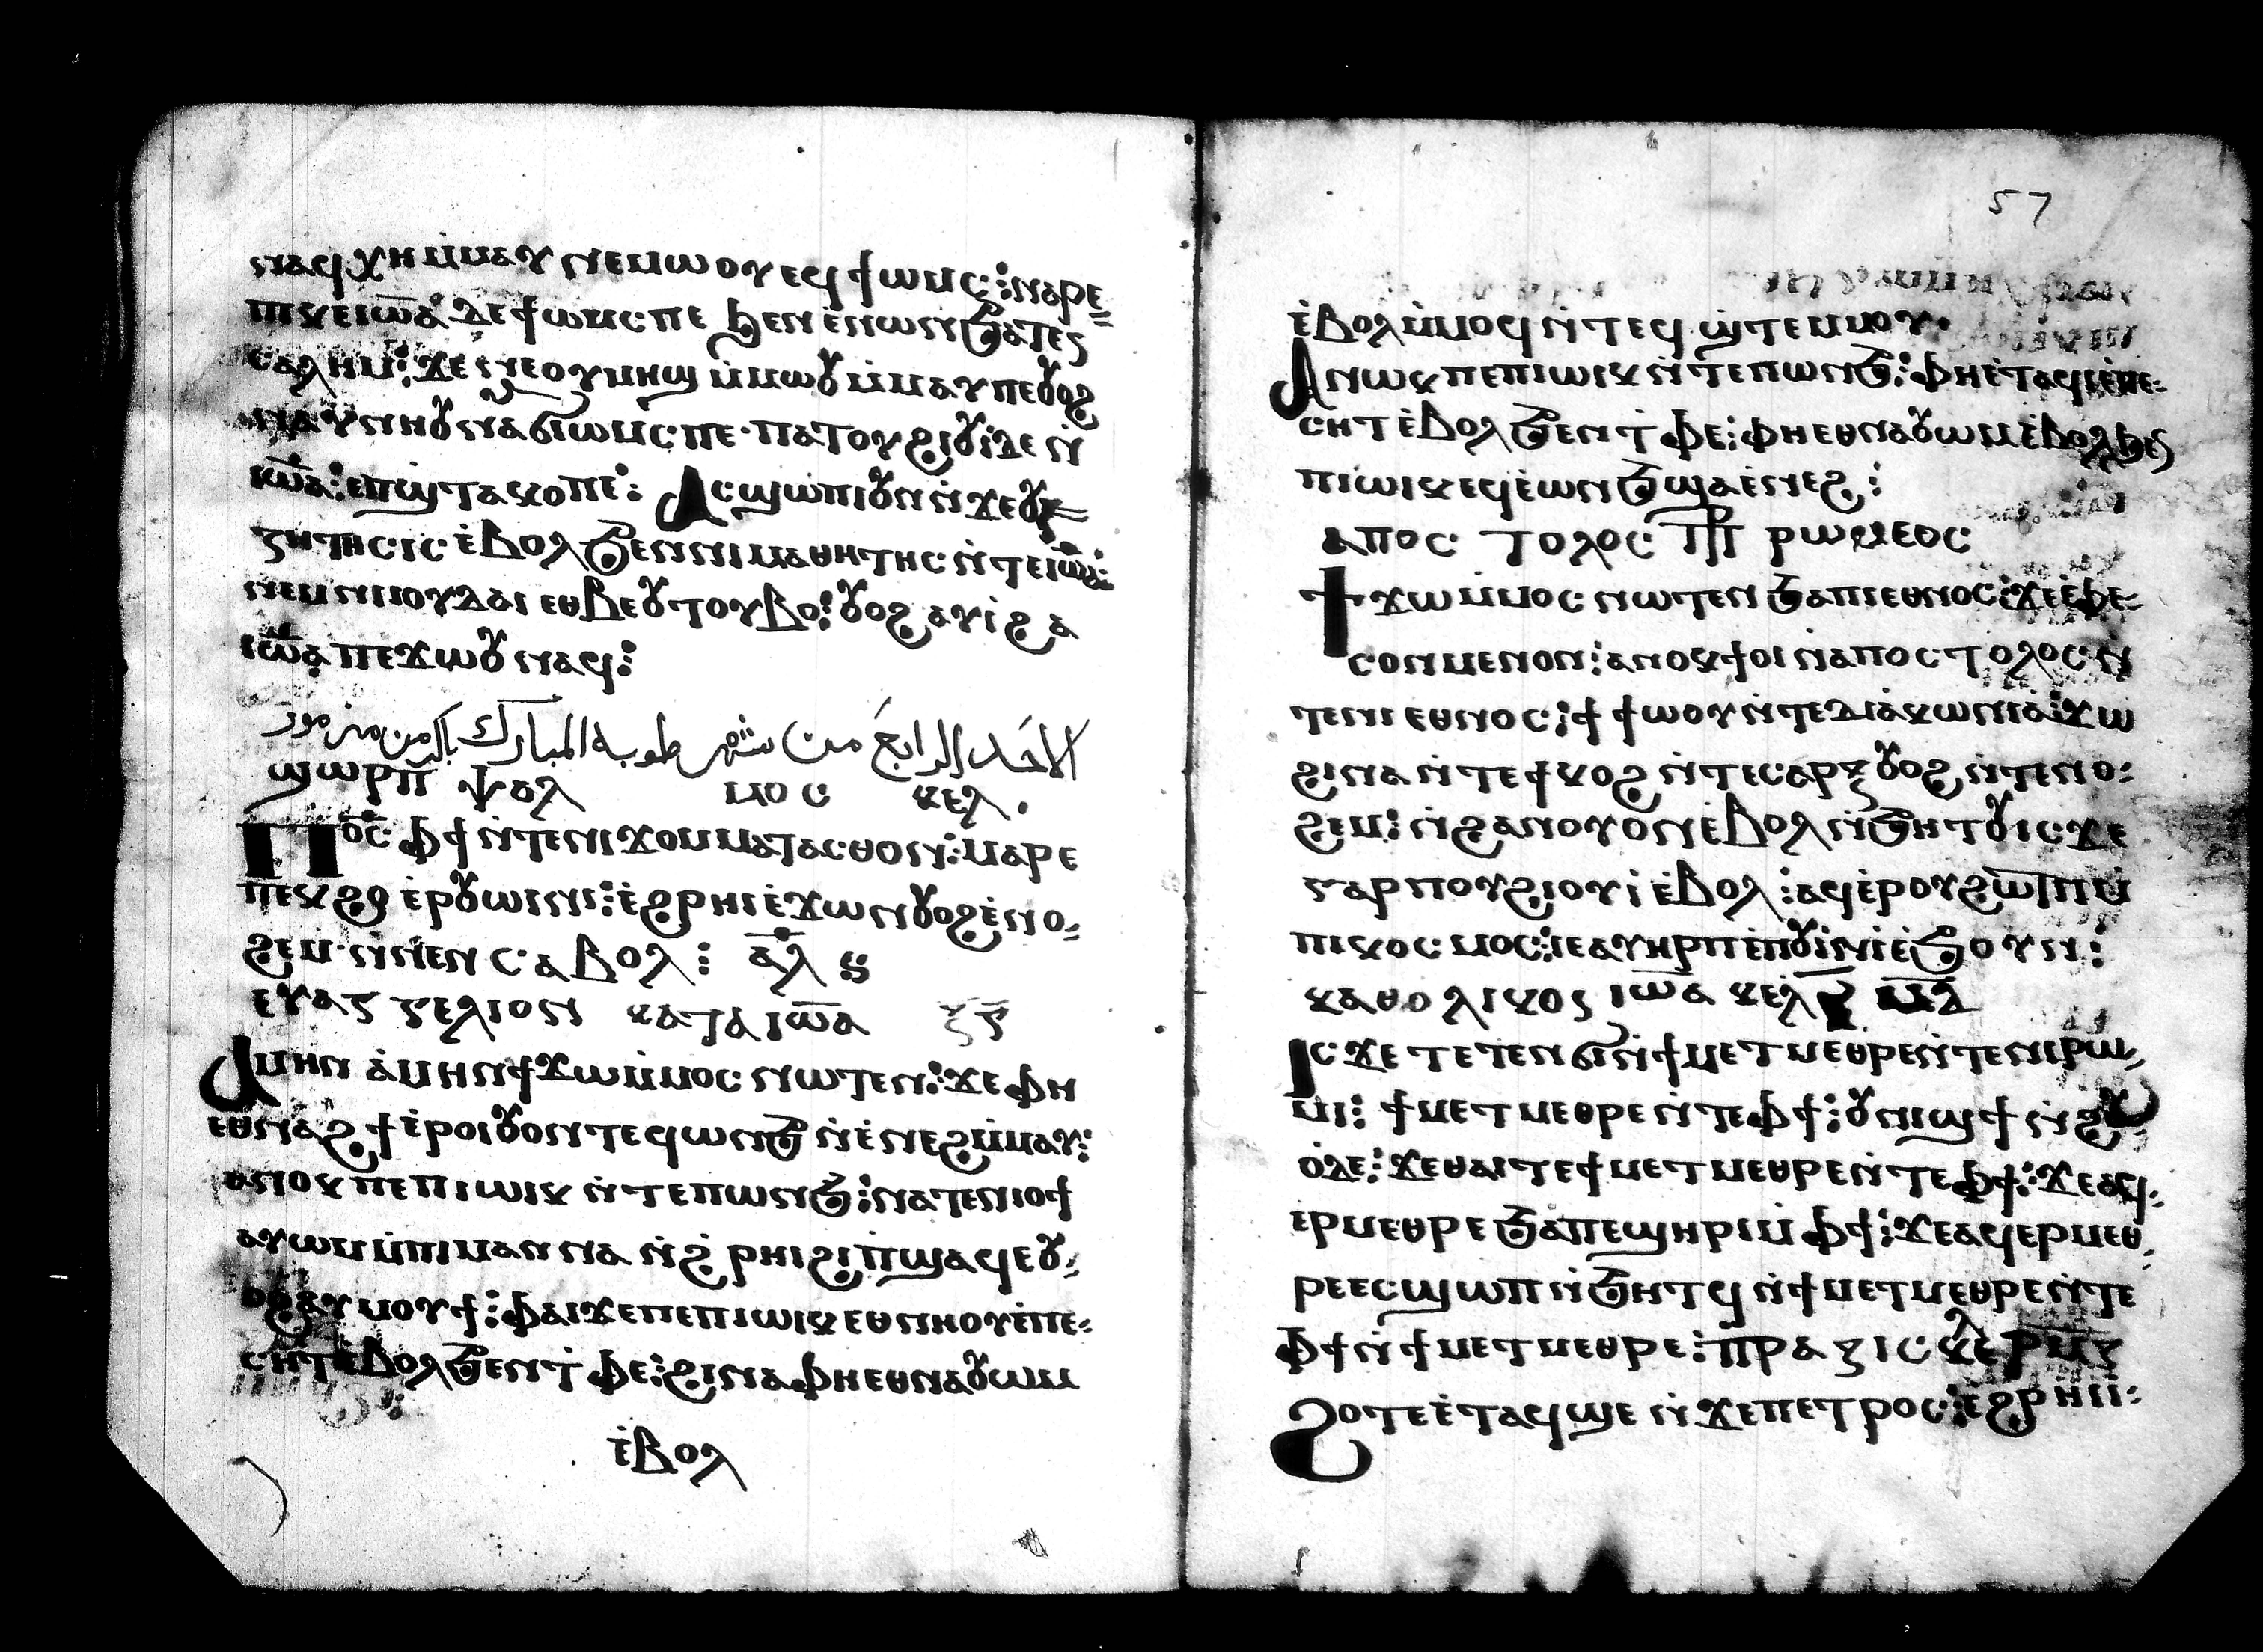 ⲛⲁϥⲭⲏ ⲙ̇ⲙⲁⲩ ⲛⲉⲙⲱⲟⲩ ⲉϥϯⲱⲙⲥ: ⲛⲁⲣⲉ
ⲡⲓⲕⲉⲓⲱ̅ⲁ ⲇⲉ ϯⲱⲙⲥ ⲡⲉ ϧⲉⲛ ⲉ̇ⲛⲱⲛ ϧⲁⲧⲉⲛ
ⲥⲁⲗⲏⲙ: ϫⲉ ⲛⲉⲟⲩⲙⲏϣ ⲙ̇ⲙⲱⲟⲩ ⲙ̇ⲙⲁⲩ ⲡⲉ ⲟⲩⲟϩ
ⲛⲁⲩⲛⲏⲟⲩ ⲛⲁϭⲓⲱⲙⲥ ⲡⲉ· ⲡⲁⲧⲟⲩϩⲓⲟⲩⲓ̇ ⲇⲉ ⲛ̇
ⲓⲱ̅ⲁ: ⲉⲡϣⲧⲁⲕⲟ ⲡⲉ: Ⲁⲥϣⲱⲡⲓ ⲟⲩⲛ ⲛ̇ϫⲉⲟⲩ
ⲍⲏⲧⲏⲥⲓⲥ ⲉ̇ⲃⲟⲗ ϧⲉⲛ ⲛⲓⲙⲁⲑⲏⲧⲏⲥ ⲛ̇ⲧⲉⲓⲱ̅ⲁ:
ⲛⲉⲙ ⲛⲓⲓⲟⲩⲇⲁⲓ ⲉⲑⲃⲉⲟⲩⲧⲟⲩⲃⲟ: ⲟⲩⲟϩ ⲁⲩⲓ̇ ϩⲁ
ⲓⲱ̅ⲁ ⲡⲉϫⲱⲟⲩ ⲛⲁϥ:
الاحد الرابع من شهر طوبه المبارك باكر من مزمور
ϣⲱⲣⲡ ⲯⲁⲗ ⲙⲟⲥ ⲕⲉⲗ.
Ⲡⲟ̅ⲥ̅ ⲫϯ ⲛ̇ⲧⲉⲛⲓϫⲟⲙ ⲙⲁⲧⲁⲥⲑⲟⲛ: ⲙⲁⲣⲉ
ⲡⲉⲕϩⲟ ⲉ̇ⲣⲟⲩⲱⲓⲛⲓ: ⲉ̇ϩⲣⲏⲓ ⲉ̇ϫⲱⲛ ⲟⲩⲟϩ ⲉ̇ⲛⲟ
ϩⲉⲙ· ⲛ̇ⲛⲉⲛ ⲥⲁⲃⲟⲗ: ⲁ̅ⲗ ⳋ
ⲉⲩⲁⲅⲅⲉⲗⲓⲟⲛ ⲕⲁⲧⲁ ⲓⲱ̅ⲁ
Ⲁⲙⲏⲛ ⲁ̇ⲙⲏⲛ ϯϫⲱ ⲙ̇ⲙⲟⲥ ⲛⲱⲧⲉⲛ: ϫⲉ ⲫⲏ
ⲉⲑⲛⲁϩϯ ⲉ̇ⲣⲟⲓ ⲟⲩⲟⲛⲧⲉϥ ⲱⲛϧ ⲛ̇ⲉ̇ⲛⲉϩ ⲙ̇ⲙⲁⲩ:
ⲁⲛⲟⲕ ⲡⲉ ⲡⲓⲱⲓⲕ ⲛ̇ⲧⲉⲡⲱⲛϧ: ⲛⲁⲧⲉⲛⲓⲟϯ
ⲁⲩⲱⲙ ⲙ̇ⲡⲓⲙⲁⲛⲛⲁ ⲛ̇ϩⲣⲏⲓ ϩⲓ ⲡ̇ϣⲁϥⲉ ⲟⲩ
ⲟϩ ⲁⲩⲙⲟⲩϯ: ⲫⲁⲓ ϫⲉ ⲡⲉ ⲡⲓⲱⲓⲕ ⲉⲑⲛⲏⲟⲩ ⲉ̇ⲡⲉ
ⲥⲏⲧ ⲉ̇ⲃⲟⲗ ϧⲉⲛ ⲧ̇ⲫⲉ: ϩⲓⲛⲁ ⲫⲏ ⲉⲑⲛⲁⲟⲩⲱⲙ
ⲉ̇ⲃⲟⲗ
57
ⲉ̇ⲃⲟⲗ ⲙ̇ⲙⲟϥ ⲛ̇ⲧⲉϥϣ̇ⲧⲉⲙⲙⲟⲩ.
Ⲁⲛⲱⲕ ⲡⲉ ⲡⲓⲱⲓⲕ ⲛ̇ⲧⲉⲡⲱⲛϧ: ⲫⲏ ⲉ̇ⲧⲁϥⲓ̇ ⲉ̇ⲡⲉ
ⲥⲏⲧ ⲉ̇ⲃⲟⲗ ϧⲉⲛ ⲧ̇ⲫⲉ: ⲫⲏ ⲉⲑⲛⲁⲟⲩⲱⲙ ⲉ̇ⲃⲟⲗ ϧⲉⲛ
ⲡⲓⲱⲓⲕ ⲉϥⲉ̇ⲱⲛϧ ϣⲁⲉ̇ⲛⲉϩ:
ⲁⲡⲟⲥ ⲧⲟⲗⲟⲥ ⲣⲱⲙⲉⲟⲥ
Ϯϫⲱ ⲙ̇ⲙⲟⲥ ⲛⲱⲧⲉⲛ ϧⲁ ⲛⲓⲉⲑⲛⲟⲥ: ϫⲉ ⲉ̇ⲫⲉ
ⲥⲟⲛ ⲙⲉⲛⲟⲛ: ⲁⲛⲟⲕ ϯⲟⲓ ⲛ̇ⲁⲡⲟⲥⲧⲟⲗⲟⲥ ⲛ
ⲧⲉⲛⲓⲉⲑⲛⲟⲥ: ϯϯⲱⲟⲩ ⲛ̇ⲧⲉⲇⲓⲁⲕⲱⲛⲓⲁ: ϫⲱ
ϩⲓⲛⲁ ⲛ̇ⲧⲉϯⲕⲟϩ ⲛ̇ⲧⲉⲥⲁⲣⲝ ⲟⲩⲟϩ ⲛ̇ⲧⲉⲛⲟ
ϩⲉⲙ: ⲛ̇ϩⲁⲛⲟⲩⲟⲛ ⲉ̇ⲃⲟⲗ ⲛ̇ϧⲏⲧⲟⲩ ⲓⲥϫⲉ
ⲅⲁⲣ ⲡⲟⲩϩⲓⲟⲩⲓ̇ ⲉ̇ⲃⲟⲗ: ⲁϥⲉ̇ⲣ ⲟⲩϩⲱⲧⲡ ⲙ̇
ⲡⲓⲕⲟⲥⲙⲟⲥ: ⲓⲉ ⲁⲩⲏⲣ ⲡⲉ ⲡⲟⲩⲓ̇ⲛⲓ ⲉ̇ϧⲟⲩⲛ:
ⲕⲁⲑⲟⲗⲓⲕⲟⲛ ⲓⲱ̅ⲁ ⲕⲉⲗ
Ⲓⲥϫⲉ ⲧⲉⲧⲉⲛϭⲓ ⲛ̇ϯⲙⲉⲧⲙⲉⲑⲣⲉ ⲛ̇ⲧⲉⲛⲓⲣⲱ
ⲙⲓ: ϯⲙⲉⲧⲙⲉⲑⲣⲉ ⲛ̇ⲧⲉⲫϯ: ⲟⲩⲛⲓϣϯ ⲛ̇ϩⲟⲩ
ⲟ̇ⲇⲉ: ϫⲉ ⲑⲁⲓ ⲧⲉ ϯⲙⲉⲧⲙⲉⲑⲣⲉ ⲛ̇ⲧⲉⲫϯ: ϫⲉ ⲁϥ
ⲉⲣⲙⲉⲑⲣⲉ ϧⲁ ⲡⲉϣⲏⲣⲓ ⲙ̇ⲫϯ: ϫⲉ ⲁϥⲉⲣⲙⲉⲑ
ⲣⲉ ⲉⲥϣⲱⲡ ⲛ̇ϧⲏⲧϥ ⲛ̇ϯⲙⲉⲧⲙⲉⲑⲣⲉ ⲛ̇ⲧⲉ
ⲫϯ ⲛ̇ϯⲙⲉⲧⲙⲉⲑⲣⲉ: ⲡ̇ⲣⲁⲝⲓⲥ ⲕⲉⲗ
Ϩⲟⲧⲉ ⲉ̇ⲧⲁϥϣⲉ ⲛ̇ϫⲉⲡⲉⲧⲣⲟⲥ: ⲉϩⲣⲏⲓ